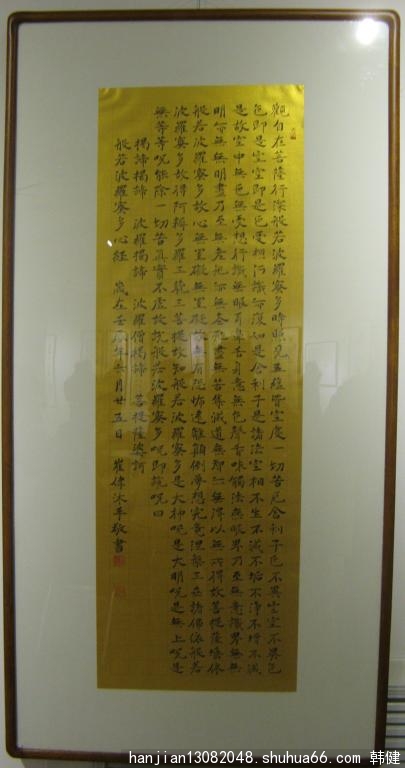 觀自在菩薩行深般若波羅蜜多時照見五蘊皆空度一切苦厄舍利子色不異空空不異色
色即是空空即是色受想行識亦復如是舍利子是諸法空相不生不滅不垢不淨不增不減
是故空中無色無受想行識無眼耳鼻舌身意無色聲香味觸法無眼界乃至無意識界無無
明亦無無明盡乃至無老死亦無老死盡無苦集滅道無智亦無得以無所得故菩提薩埵依
般若波羅蜜多故心無罣礙無罣礙故無有恐怖遠離顛倒夢想究竟涅槃三世諸佛依般若
波羅蜜多故得阿耨多羅三藐三菩提故知般若波羅蜜多是大神呪是大明呪是無上呪是
無等等呪能除一切苦真實不虛故說般若波羅蜜多呪即說呪曰
揭諦揭諦 波羅揭諦 波羅僧揭諦 菩提薩婆訶
般若波羅蜜多心經 歲在壬辰年六月廿五日 崔偉沐手敬書
hanjian13082048.shuhua66.com 韩健